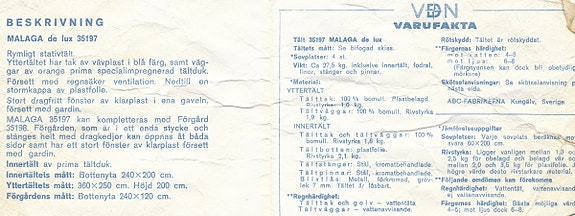 BESKRIVNING
MALAGA de lux 35197
Rymligt stativtält
Yttertältet har tak av vävplast i blå färg, samt väg-
gar av orange prima specialimpregnerad tältduk.
Försett med regnsäker ventilation. Nedtill en
stormkappa av plastfolie.
Stort dragfritt fönster av klarplast i ena gaveln,
försett med gardin.
MALAGA 35197 kan kompletteras med Förgård
35198. Förgården, som är i ett enda stycke och
stänges helt med dragkedjor kan öppnas åt båda
sidor samt har ett stort fönster av klarplast försett
med gardin.
Innertält av prima tältduk.
Innertältets mått: Bottenyta 240×200 cm.
Yttertältets mått: 360×250 cm. Höjd 200 cm.
Förgårdens mått: Bottenyta 240×120 cm.
VDN
VARUFAKTA
Tält 35197 MALAGA de lux
Tältets mått: Se bifogad skiss.
*Sovplatser: 4 st.
Vikt: Ca 27,5 kg, inklusive innertält, fodral,
linor, stänger och pinnar.
*Material:
YTTERTÄLT
Tälttak: 100% bomull. Plastbelagd.
Rivstyrka 1,0 kg.
Tältväggar: 100% bomull. Rivstyrka
1,9 kg.
INNERTÄLT
Tälttak och tältväggar: 100%
bomull. Rivstyrka 1,6 kg.
Tältbotten: Plastfolie.
Rivstyrka 2,1 kg.
Tältstänger: Stål, kromatbehandlade.
Tältpinnar: Stål, kromatbehandlade.
Blixtlås: Metall, förkromad, grov-
lek 7 mm. Tältet är låsbart.
**Regnhärdighet:
Tälttak och golv – vattentäta.
Tältväggar – vattenavvisande.
Rötskydd: Tältet är rötskyddat.
**Färgernas härdighet:
mot sol: 4–5
mot ljus: 6–8
(Färgnyansen kan dock bli obetydligt
mörkare)
Skötselanvisning: Se skötselanvisning på
sista sidan.
ABC-FABRIKERNA Kungälv, Sverige
*Jämförelseuppgifter
Sovplatser: Varje sovplats beräknas mot-
svara 60×200 cm.
Rivstyrka: Ligger vanligen mellan 1,0 och
2,5 kg för obelagd och belagd väv samt
mellan 2,0 och 3,5 kg för plastfolie. Ju
högre värde desto rivstarkare material.
**Följande omdömen kan förekomma
Regnhärdighet: Vattentät, vattenavvisande,
ej vattenavvisande.
Färgernas härdighet: Bästa värde mot sol
4–5, mot ljus 6–8.